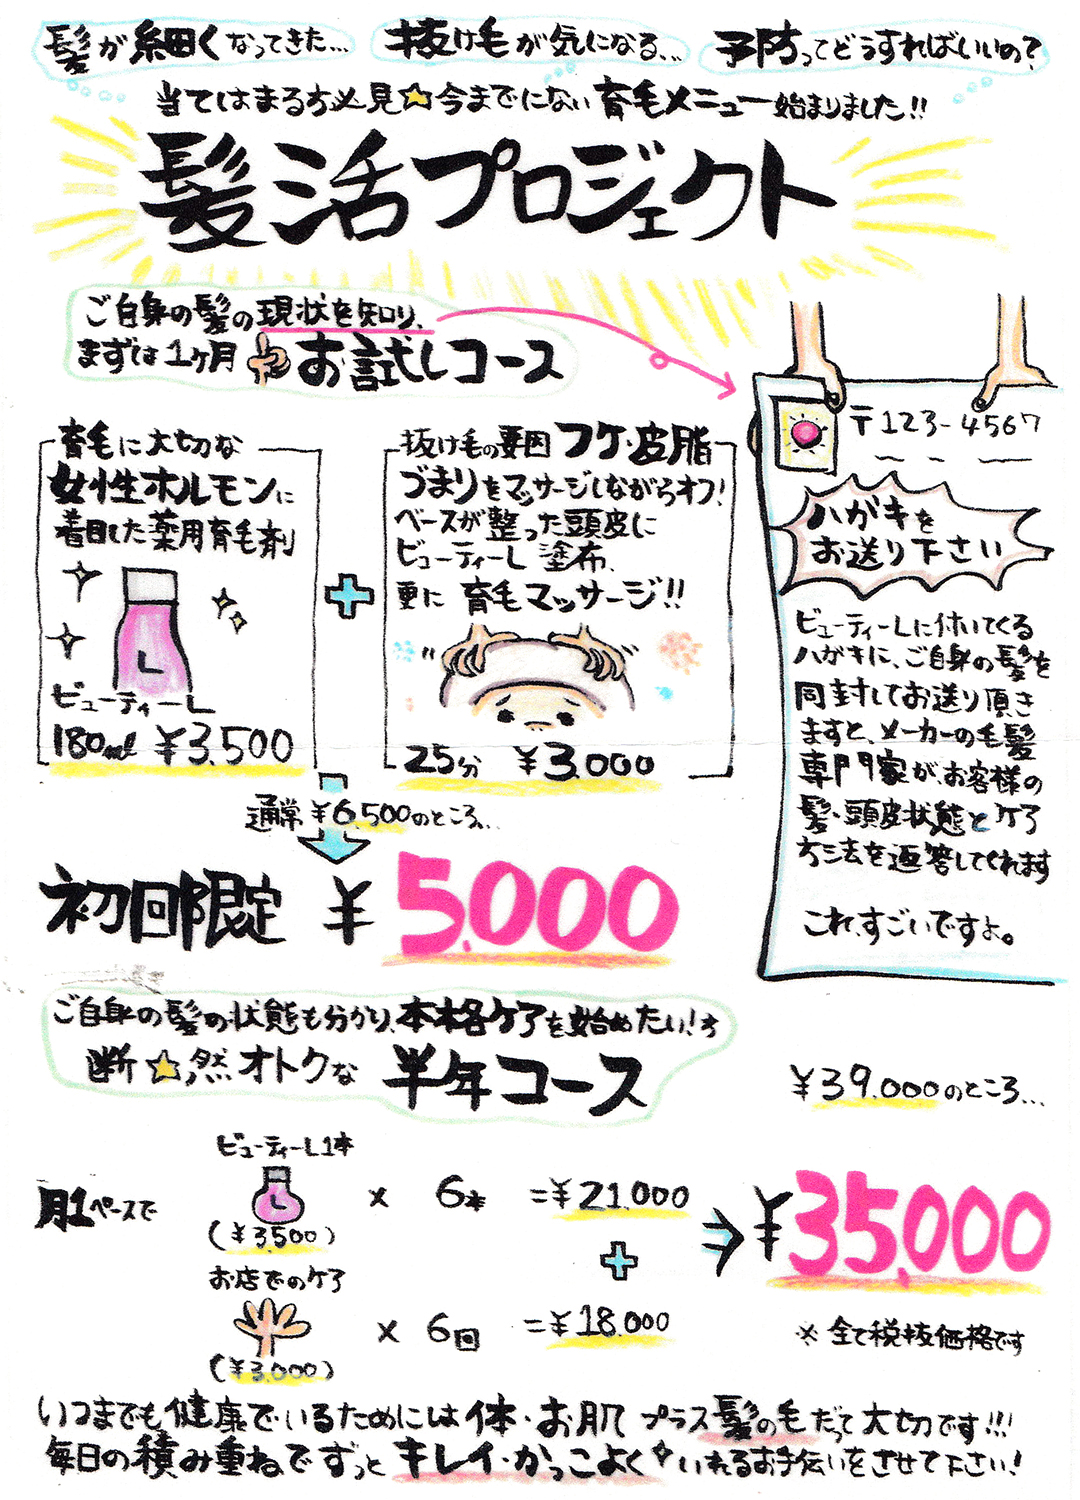 髪が細くなってきた…
抜け毛が気になる…
予防ってどうすればいいの?
当てはまる方必見☆今までにない育毛メニュー始まりました!!
髪活プロジェクト
ご自身の髪の現状を知り、
まずは1ヶ月お試しコース
育毛に大切な
女性ホルモンに
着目した薬用育毛剤
L
ビューティーL
180ml ¥3,500
+
抜け毛の要因フケ・皮脂
づまりをマッサージしながらオフ!
ベースが整った頭皮に
ビューティーL 塗布、
更に 育毛マッサージ!!
25分 ¥3,000
〒123-4567
ハガキを
お送り下さい
ビューティーLに付いてくる
ハガキに、ご自身の髪を
同封してお送り頂き
ますと、メーカーの毛髪
専門家が、お客様の
髪・頭皮状態とケア
方法を返答してくれます
これ、すごいですよ。
通常¥6,500のところ…
初回限定 ¥5,000
ご自身の髪の状態も分かり、本格ケアを始めたい!方
断☆然オトクな 半年コース
¥39,000のところ…
月1ペースで
ビューティーL1本
L
(¥3,500)
× 6本 =¥21,000
+
お店でのケア
(¥3,000)
× 6回 =¥18,000
⇒ ¥35,000
※全て税抜価格です
いつまでも健康でいるためには体・お肌 プラス髪の毛だって大切です!!!
毎日の積み重ねでずっとキレイ・かっこよくいれるお手伝いをさせて下さい!